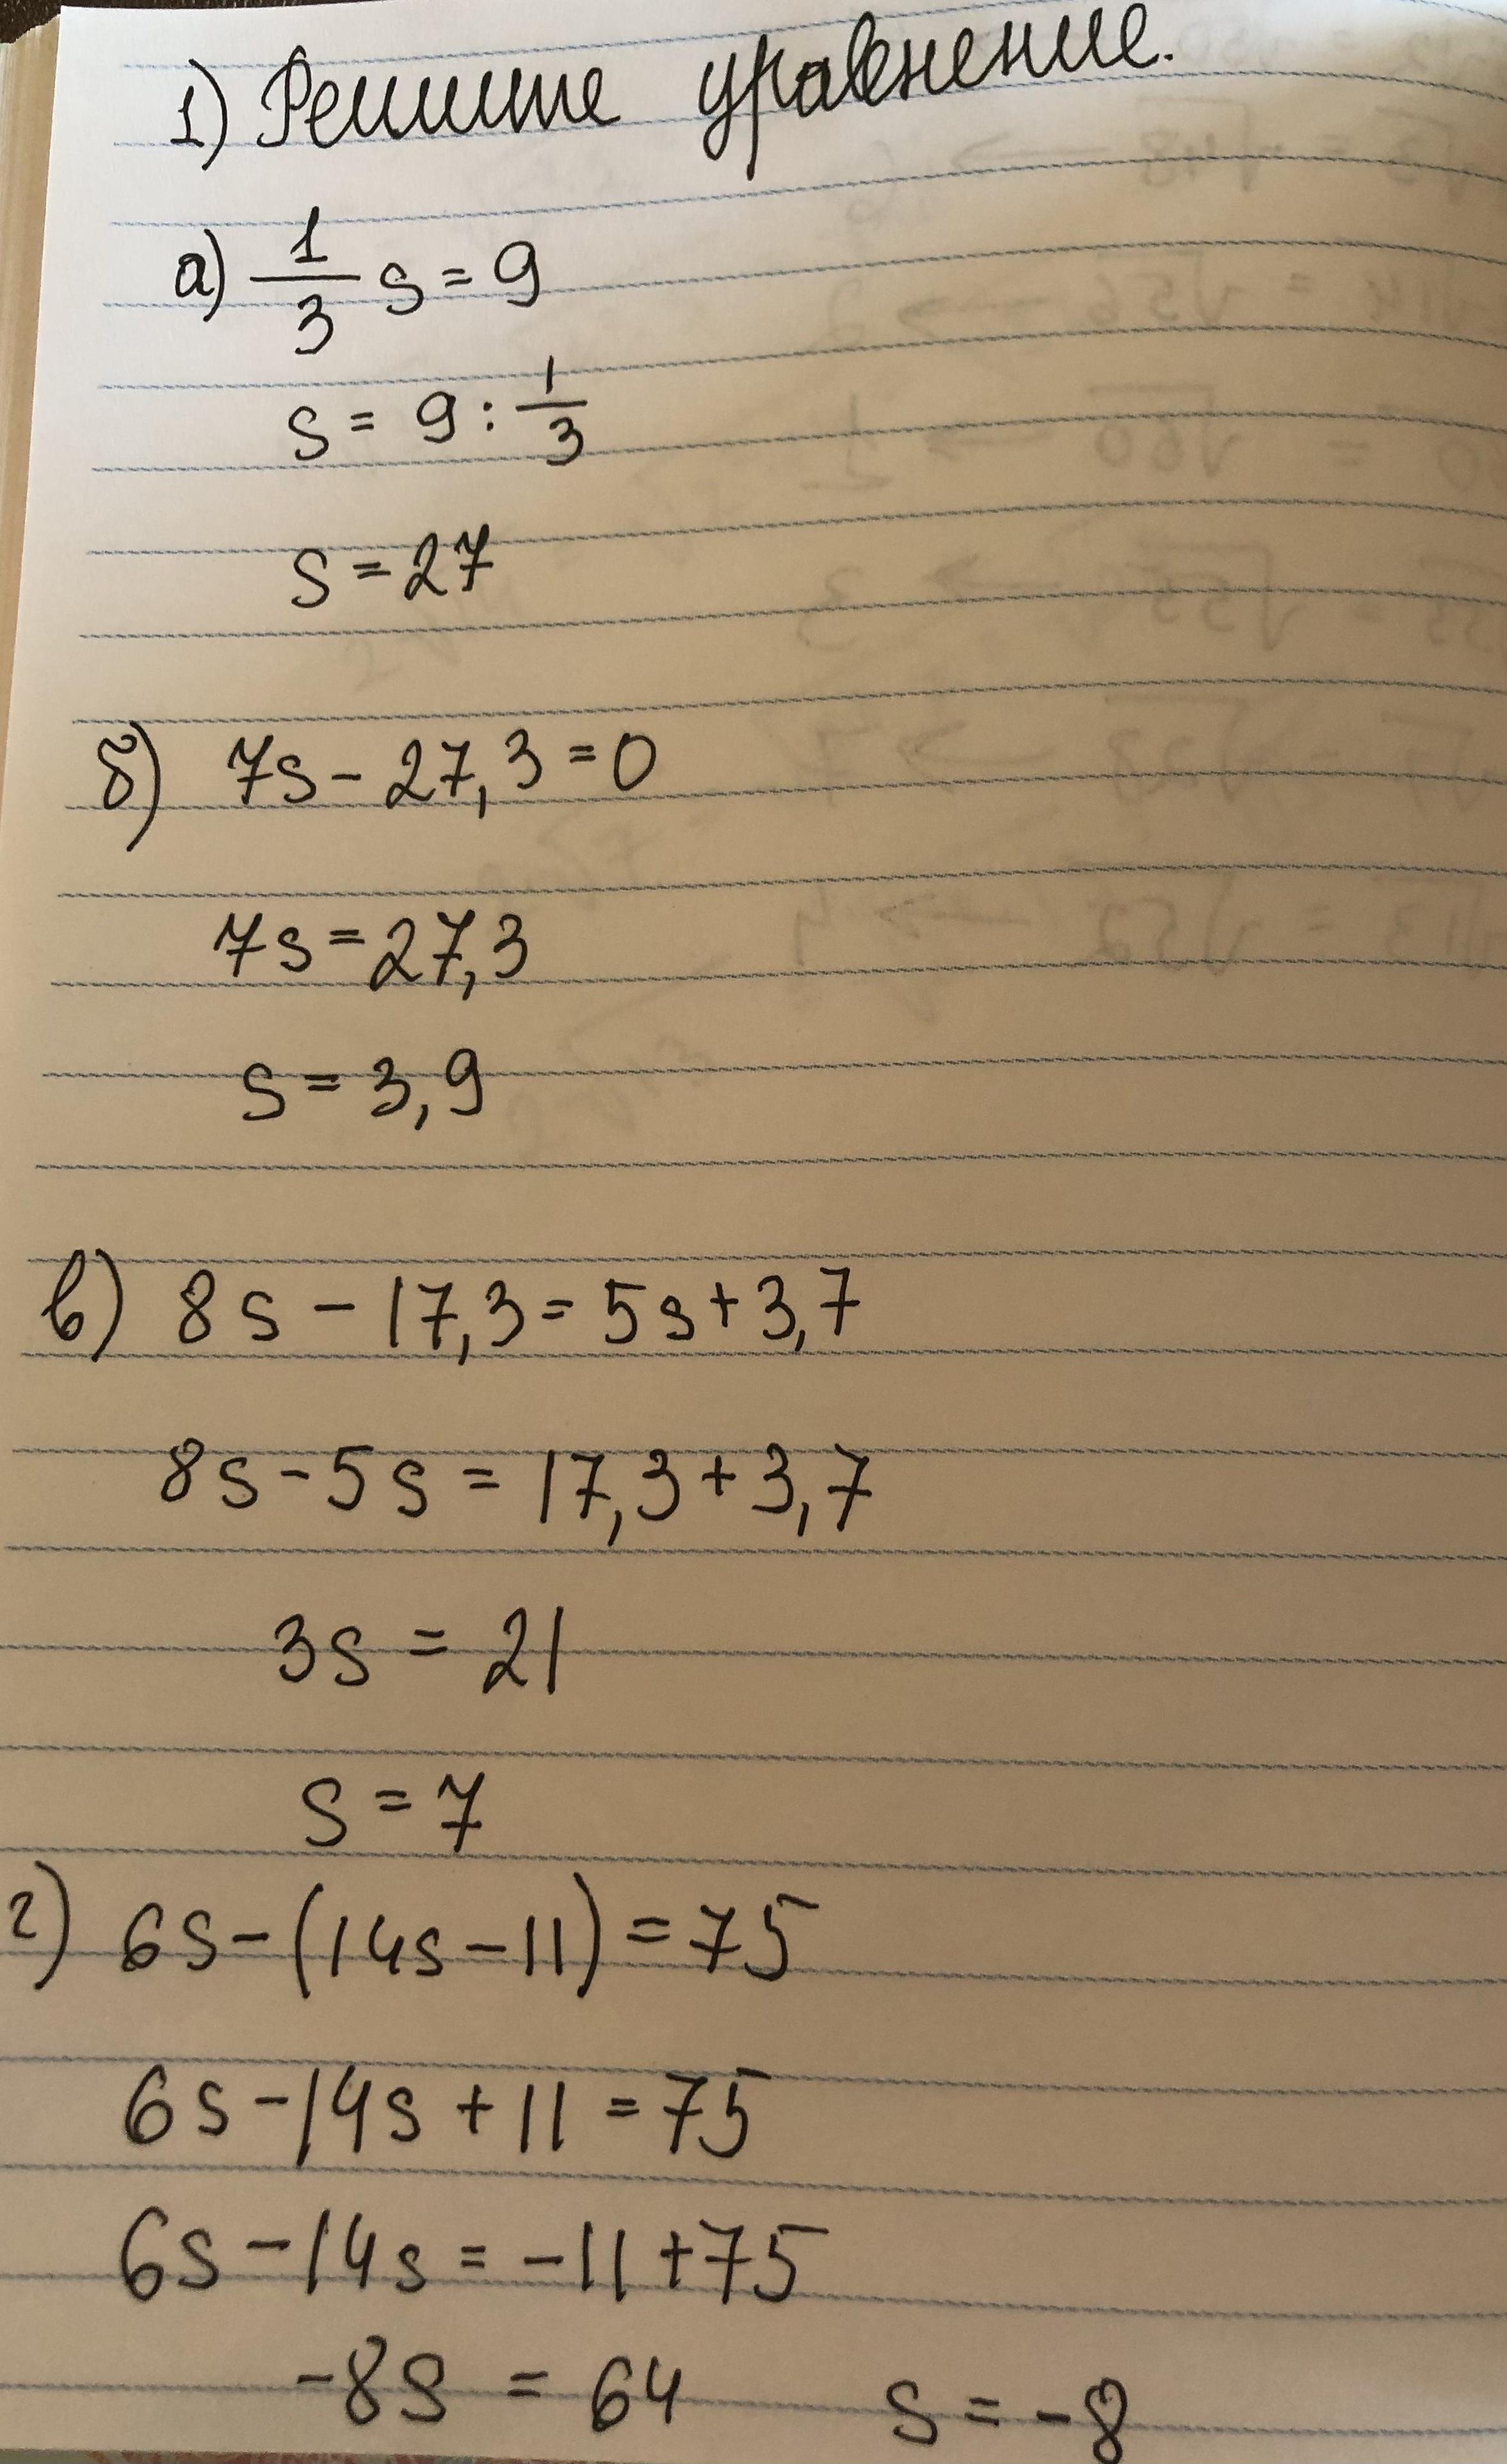 1) Решите уравнение.
а) 1/3 s = 9
s = 9 : 1/3
s = 27
б) 7s - 27,3 = 0
7s = 27,3
s = 3,9
в) 8s - 17,3 = 5s + 3,7
8s - 5s = 17,3 + 3,7
3s = 21
s = 7
г) 6s - (14s - 11) = 75
6s - 14s + 11 = 75
6s - 14s = -11 + 75
-8s = 64 s = -8